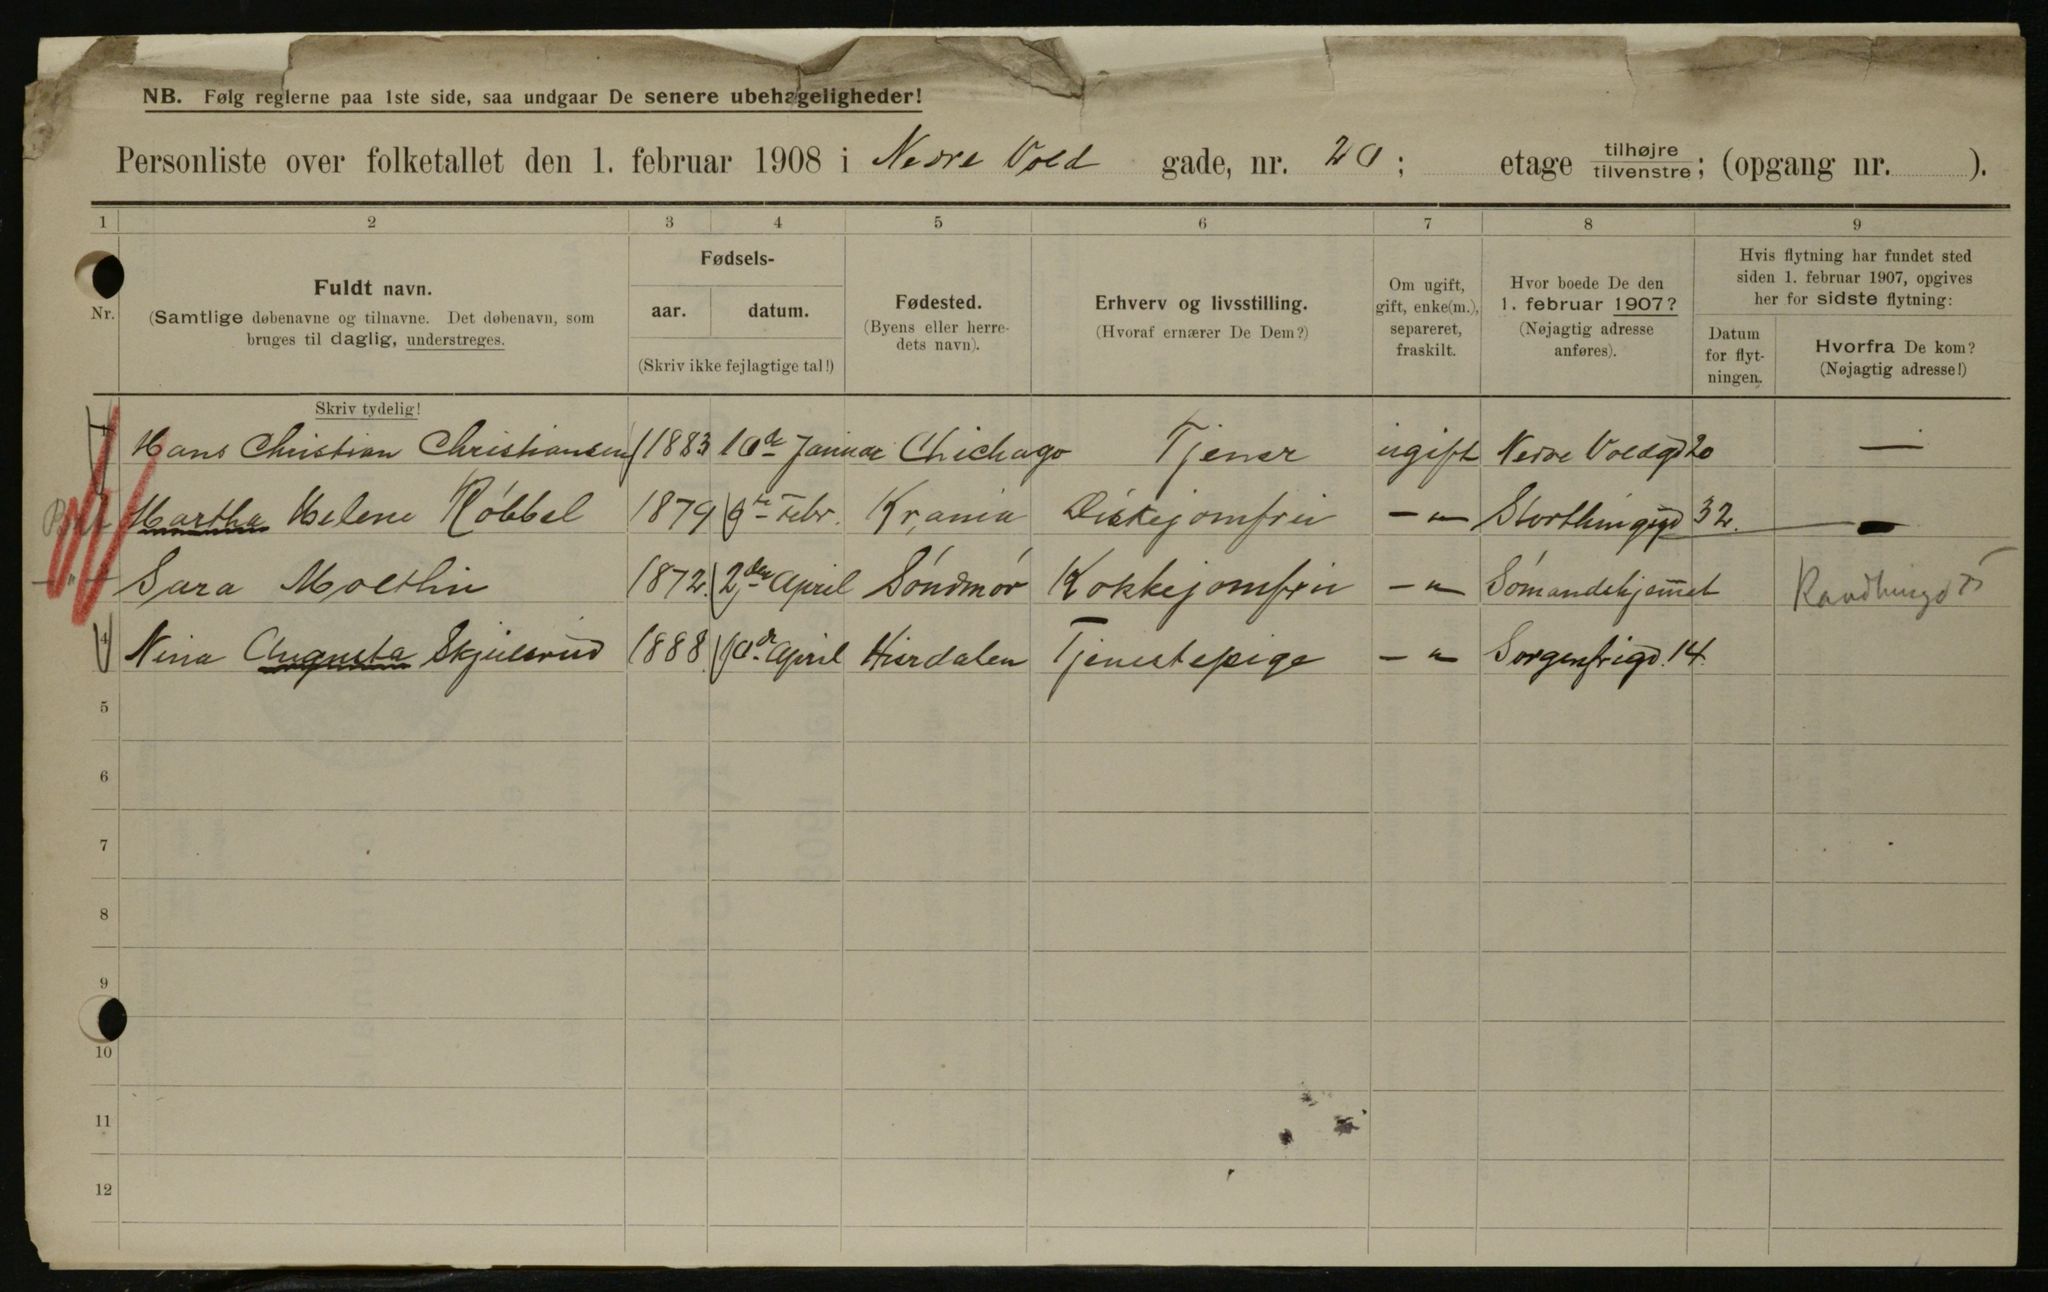 NB. Følg reglerne paa 1ste side, saa undgaar De senere ubehageligheder!
Personliste over folketallet den 1. februar 1908 i Nedre Vold gade, nr. 20; etage tilhøjre/tilvenstre; (opgang nr. ).
1 2 3 4 5 6 7 8 9
Nr.
Fuldt navn.
(Samtlige døbenavne og tilnavne. Det døbenavn, som
bruges til daglig, understreges.
Skriv tydelig!
Fødsels-
aar. datum.
(Skriv ikke fejlagtige tal!)
Fødested.
(Byens eller herre-
dets navn).
Erhverv og livsstilling.
(Hvoraf ernærer De Dem?)
Om ugift,
gift, enke(m.),
separeret,
fraskilt.
Hvor boede De den
1. februar 1907?
(Nøjagtig adresse
anføres).
Hvis flytning har fundet sted
siden 1. februar 1907, opgives
her for sidste flytning:
Datum
for flyt-
ningen.
Hvorfra De kom?
(Nøjagtig adresse!)
Hans Christian Christiansen 1883 10de Januar Chichago Tjener ugift Nedre Voldgd 20 —
Martha Helene Röbbel 1879 9de Febr. Kr,ania Diskejomfru — " — Storthingsgd 32. —
Sara Molthu 1872. 2den April Söndmör Kokkejomfru — " — Sömandshjemmet
4 Nina Augusta Skjulsrud 1888 10de April Hirdalen Tjenestepige — " — Sorgenfrigd. 14.
5
6
7
8
9
10
11
12